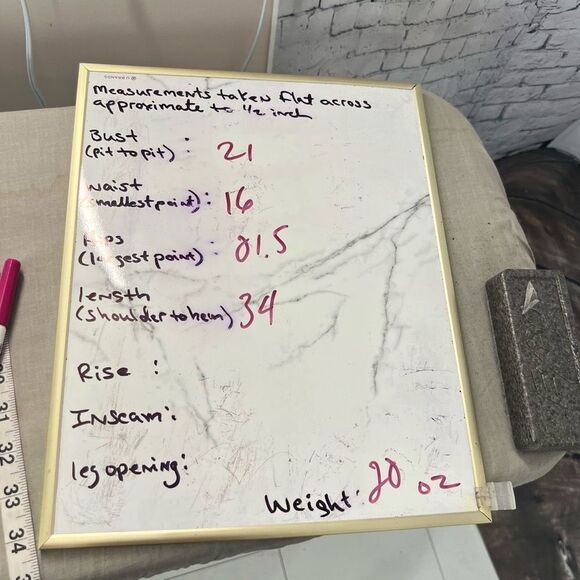 measurements taken flat across
approximate to 1/2 inch
Bust :
(pit to pit) 21
waist
(smallest point): 16
Hips :
(largest point) 21.5
length
(shoulder to hem) 34
Rise :
Inseam:
leg opening:
Weight: 20 oz
31
32
33
34